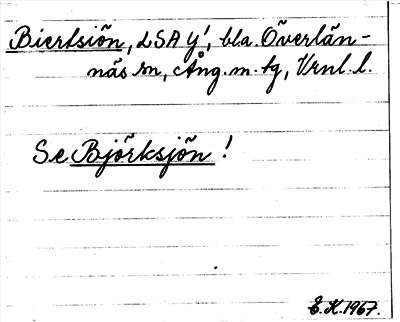 Bierksiön, LSA Y', bl.a. Överlän-
näs sn, Ång. m. tg, Vrnl. l.
Se Björksjön!
E.K. 1967.